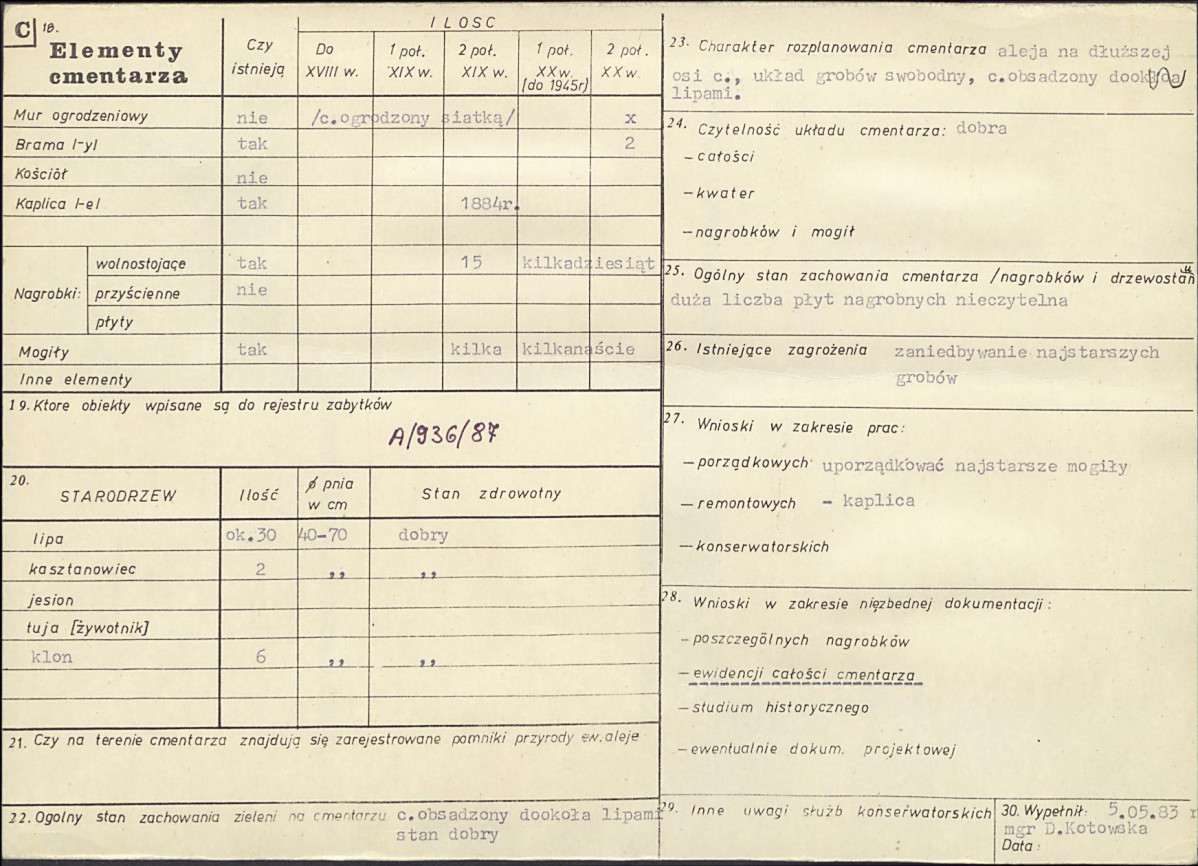 C 18.
Elementy
cmentarza
Czy
istnieją
ILOSC
Do
XVIII w.
1 poł.
XIX w.
2 poł.
XIX w.
1 poł.
XX w.
[do 1945r]
2 poł.
XX w.
Mur ogrodzeniowy nie /c.ogrodzony siatką/ x
Brama l-yl tak 2
Kościół nie
Kaplica l-el tak 1884r.
Nagrobki: wolnostojące tak 15 kilkadziesiąt
przyścienne nie
płyty
Mogiły tak kilka kilkanaście
Inne elementy
19. Ktore obiekty wpisane są do rejestru zabytków
A/936/87
20.
STARODRZEW Ilość ø pnia
w cm Stan zdrowotny
lipa ok.30 40-70 dobry
kasztanowiec 2 ,, ,,
jesion
tuja [żywotnik]
klon 6 ,, ,,
21. Czy na terenie cmentarza znajdują się zarejestrowane pomniki przyrody ew. aleje
22. Ogolny stan zachowania zieleni na cmentarzu c.obsadzony dookoła lipami
stan dobry
23. Charakter rozplanowania cmentarza aleja na dłuższej
osi c., układ grobów swobodny, c.obsadzony dookoła
lipami.
24. Czytelność układu cmentarza: dobra
- całości
- kwater
- nagrobków i mogił
25. Ogólny stan zachowania cmentarza /nagrobków i drzewostanu
duża liczba płyt nagrobnych nieczytelna
26. Istniejące zagrożenia zaniedbywanie najstarszych
grobów
27. Wnioski w zakresie prac:
- porządkowych uporządkować najstarsze mogiły
- remontowych - kaplica
- konserwatorskich
28. Wnioski w zakresie nięzbednej dokumentacji:
- poszczególnych nagrobków
- ewidencji całości cmentarza
- studium historycznego
- ewentualnie dokum. projektowej
29. Inne uwagi służb konserwatorskich
30. Wypełnił: 5.05.83 r
mgr D.Kotowska
Data: